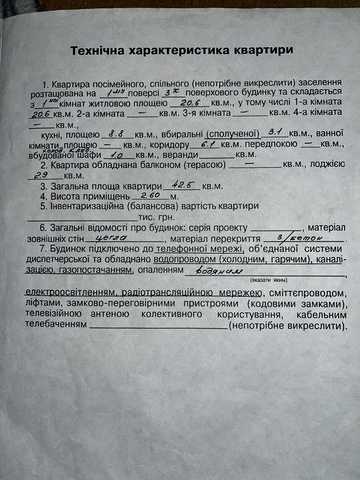 Технічна характеристика квартири
1. Квартира посімейного, спільного (непотрібне викреслити) заселення
розташована на 1 му поверсі 3 х поверхового будинку та складається
з 1 кімнат житловою площею 20.6 кв.м., у тому числі 1-а кімната
20.6 кв.м. 2-а кімната — кв.м. 3-я кімната — кв.м. 4-а кімната
— кв.м.,
кухні, площею 8.8 кв.м., вбиральні (сполученої) 3.1 кв.м., ванної
кімнати, площею — кв.м., коридору 6.1 кв.м. передпокою — кв.м.,
вбудованої шафи 1.0 кв.м., веранди кв.м.
2. Квартира обладнана балконом (терасою) — кв.м., лоджією
2.9 кв.м.
3. Загальна площа квартири 42.5 кв.м.
4. Висота приміщень 2.60 м.
5. Інвентаризаційна (балансова) вартість квартири
тис. грн.
6. Загальні відомості про будинок: серія проекту , матеріал
зовнішніх стін цегла , матеріал перекриття з/бетон
7. Будинок підключено до телефонної мережі, об'єднаної системи
диспетчерської та обладнано водопроводом (холодним, гарячим), канал-
зацією, газопостачанням, опаленням водяним
(вказати яким)
електроосвітленням, радіотрансляційною мережею, сміттєпроводом,
ліфтами, замково-переговірними пристроями (кодовими замками),
телевізійною антеною колективного користування, кабельним
телебаченням (непотрібне викреслити).